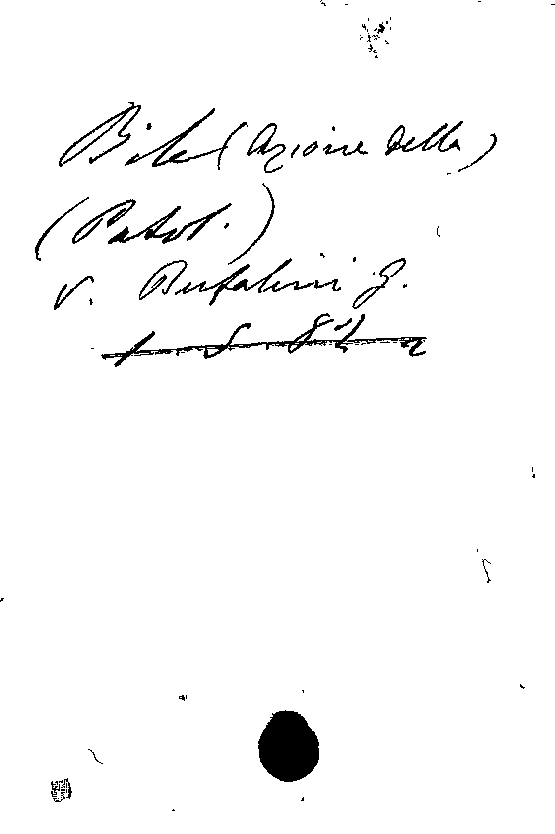 Bile (Azione della)
(Patol.)
V. Bufalini G.